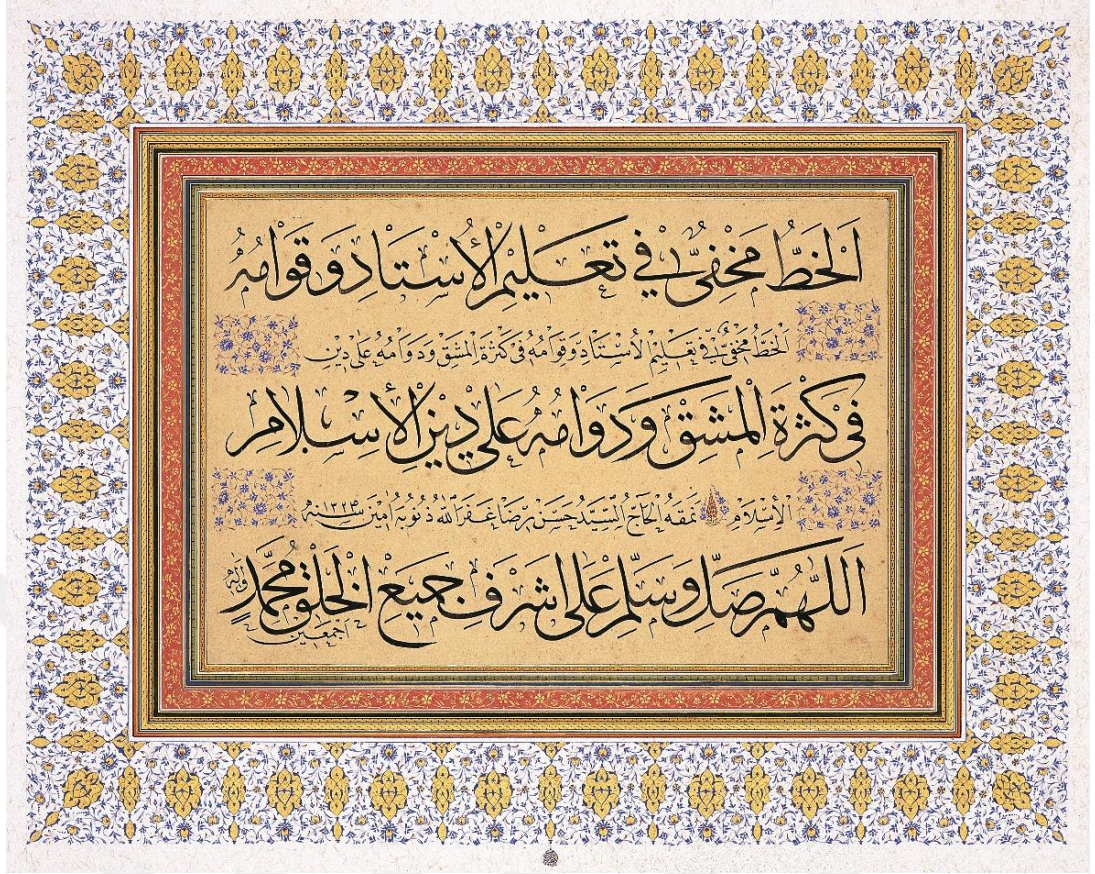 اَلْخَطُّ مَخْفِيٌّ فِي تَعْلِيْمِ الْأُسْتَاذِ وَقَوَامُهُ
اَلْخَطُّ مَخْفِيٌّ فِي تَعْلِيْمِ الْأُسْتَاذِ وَقَوَامُهُ فِي كَثْرَةِ الْمَشْقِ وَدَوَامُهُ عَلَى دِيْنِ
فِي كَثْرَةِ الْمَشْقِ وَدَوَامُهُ عَلَى دِيْنِ الْأِسْلَامِ
الْأِسْلَامِ نمقه الحاج السيد حسن رضا غفر الله ذنوبه آمين سنه ١٣٢٣
اَللّٰهُمَّ صَلِّ وَسَلِّمْ عَلَى اَشْرَفِ جَمِيْعِ الْخَلْقِ مُحَمَّدٍ وَاٰلِهِ
اجمعين